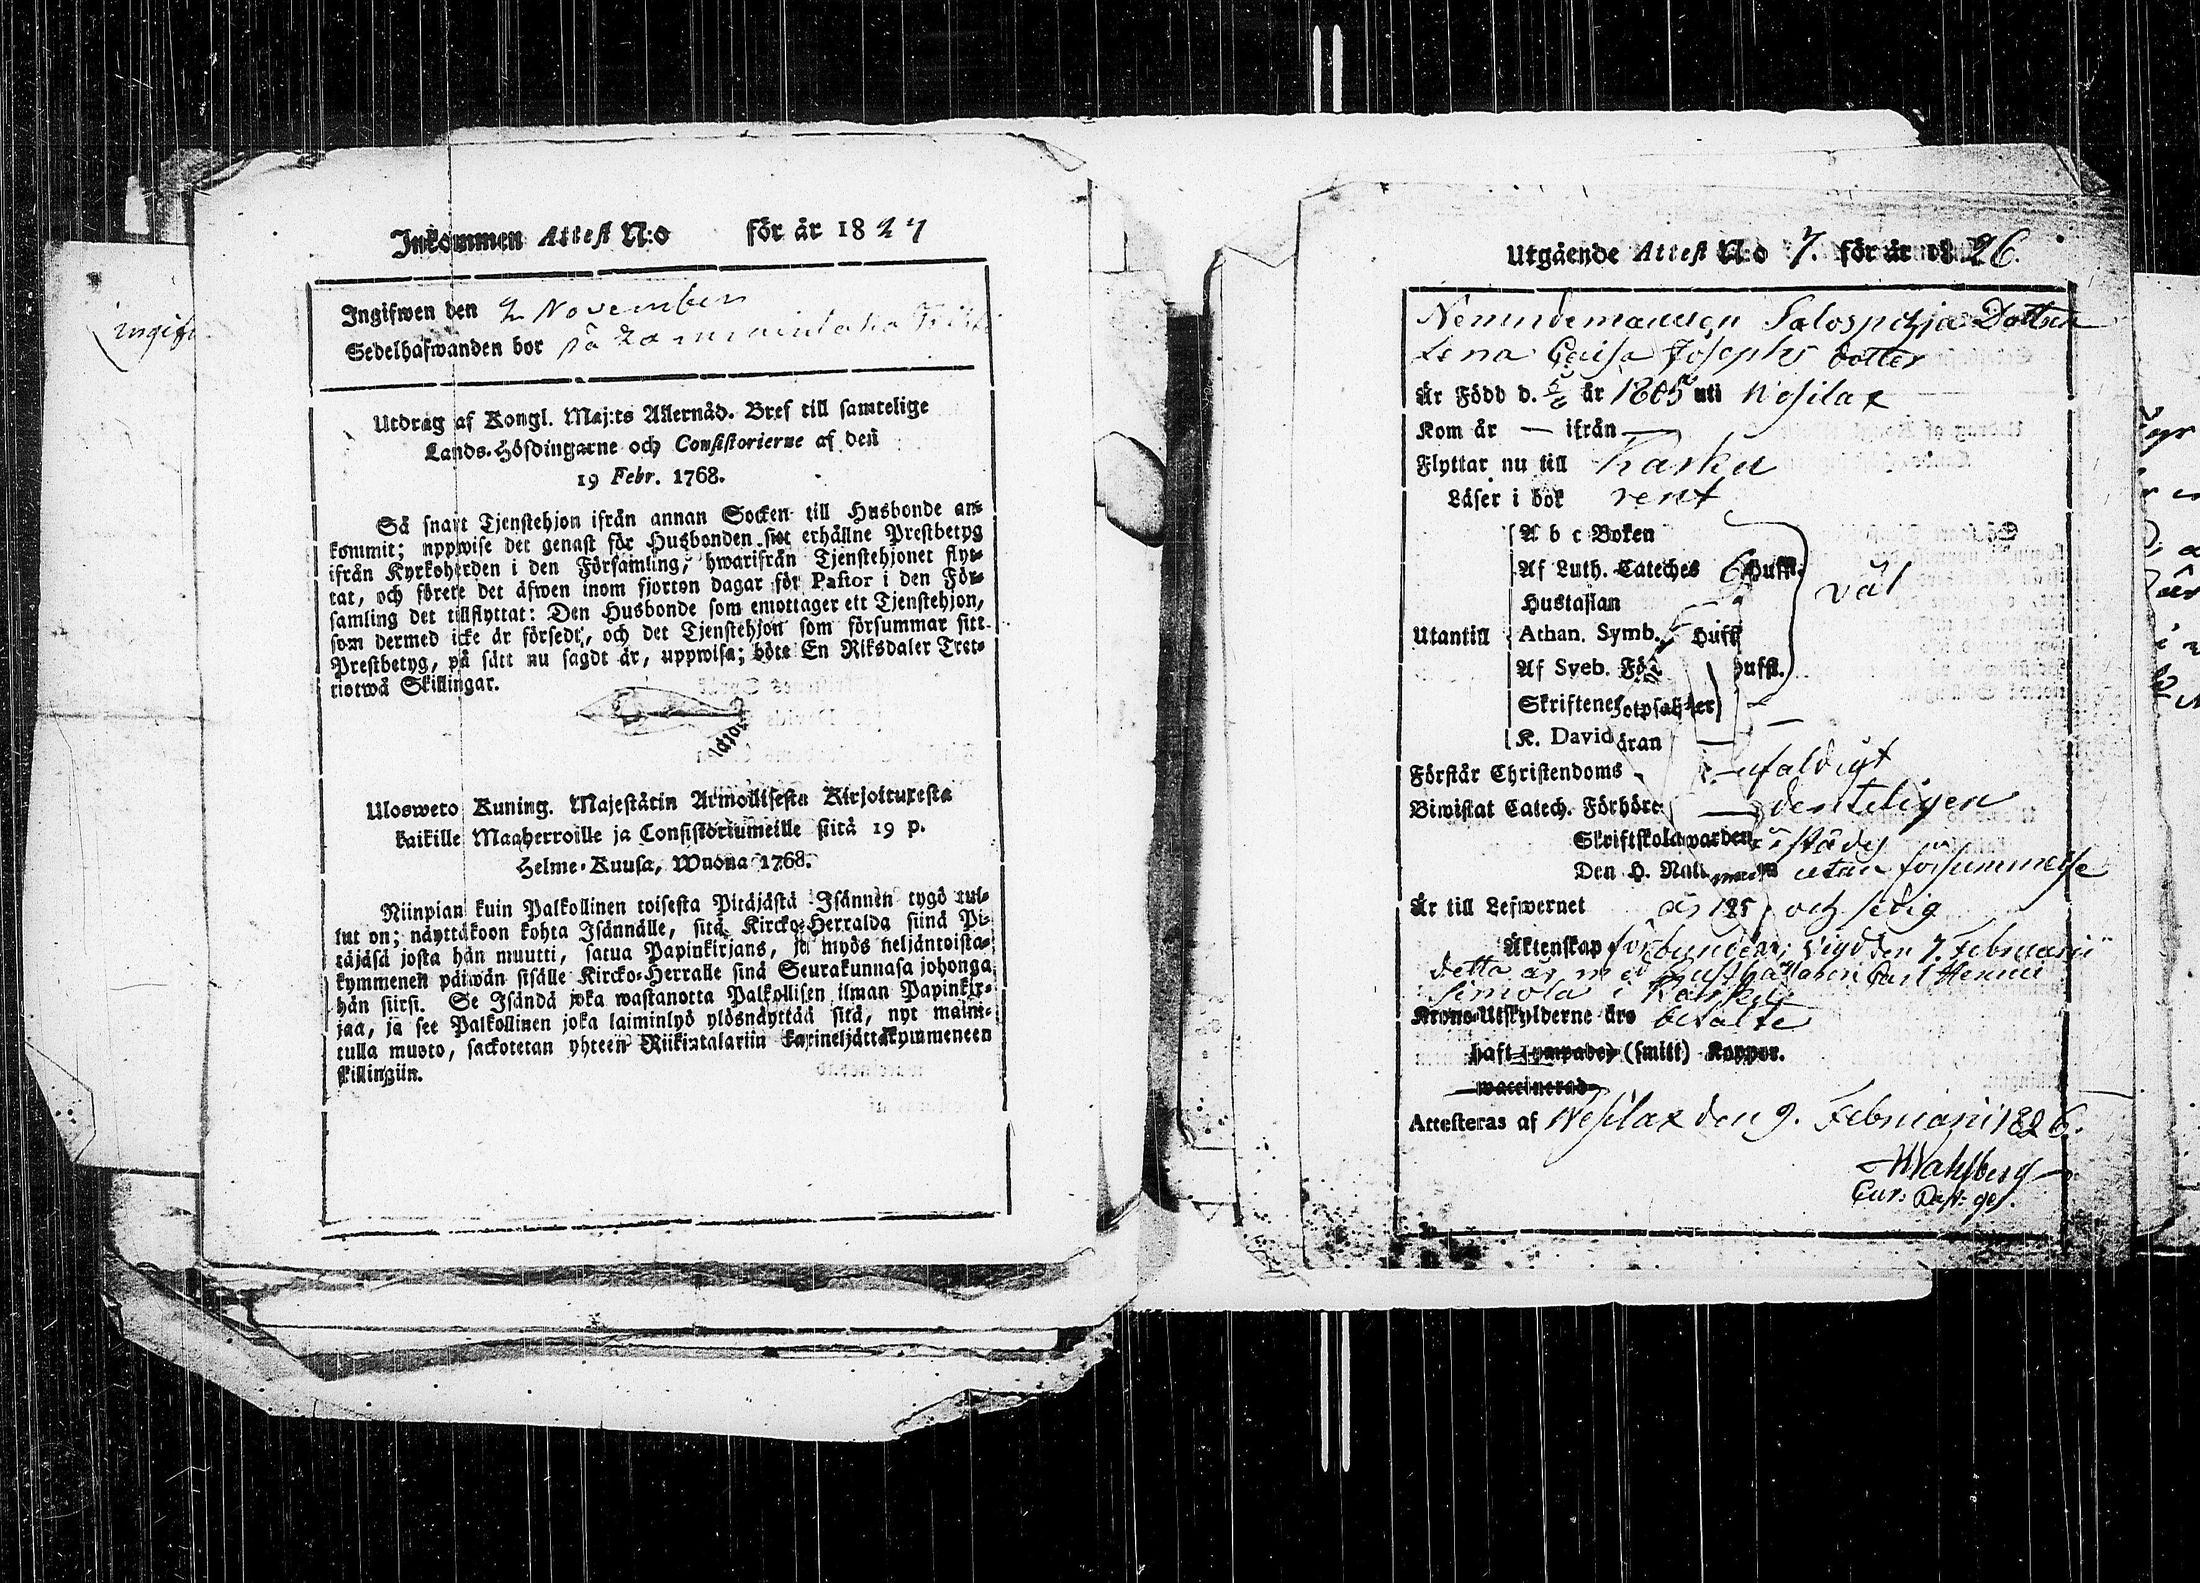 Inkommen Attest N:o för år 1827
Ingifwen den 2 November
Sedelhafwanden bor på
Utdrag af Kongl. Maj:ts Allernåd. Bref till samtelige
Lands-Höfdingarne och Consistorierne af den
19 Febr. 1768.
Så snart Tjenstehjon ifrån annan Socken till Husbonde an-
kommit; uppwise det genast för Husbonden sitt erhållne Prestbetyg
ifrån Kyrkoherden i den Församling, hwarifrån Tjenstehjonet flyt-
tat, och förete det äfwen inom fjorton dagar för Pastor i den För-
samling det tillflyttat: Den Husbonde som emottager ett Tjenstehjon,
som dermed icke är försedt, och det Tjenstehjon som försummar sitt
Prestbetyg, på sätt nu sagdt är, uppwisa; böte En Riksdaler Tret-
riotwå Skillingar.
Ulosweto Kuning. Majestätin Armollisesta Kirjoituxesta
kaikille Maaherroille ja Consistoriumeille siitä 19 p.
Helme-Kuusa, Wuona 1768.
Niinpian kuin Palkollinen toisesta Pitäjästä Isännän tygö tul-
lut on; näyttäkoon kohta Isännälle, sitä Kircko-Herralda siinä Pi-
täjäsä josta hän muutti, satua Papinkirjans, ja myös neljäntoista-
kymmenen päiwän sisälle Kircko-Herralle sinä Seurakunnasa johonga
hän siirsi. Se Isändä joka wastanotta Palkollisen ilman Papinkir-
jaa, ja see Palkollinen joka laiminlyö ylösnäyttää sitä, nyt maini-
tulla muoto, sackotetan yhteen Riikintalariin kaxineljättäkymmeneen
skillingiin.
ingifv
Utgående Attest N:o 7. för år 1826.
Nemndemannen Salospohja Dottren
Lena Caisa Josephs dotter
Är Född d. år 1805 uti Wesilax
Kom år — ifrån —
Flyttar nu till Karku
Läser i bok rent
A b c Boken
Af Luth. Cateches Huffl.
Hustaflan
Utantill Athan. Symb. Huffl
Af Sveb. För huffl.
Skriftener
K. David
Förstår Christendoms enfaldigt
Biwistat Catech. Förhör ordenteligen
Skriftskola städs
Den H. Natt utan försummelse
Är till Lefwernet och sedig
Äktenskap förbunden; Vigd den 7. Februarii
detta år med Carl Henric
Simola i Karku
Krono-Utskylderne äro betalte
haft (smitt) Koppor.
waccinerad
Attesteras af Wesilax den 9. Februarii 1826.
Wahlberg
Cur: Past: ges.